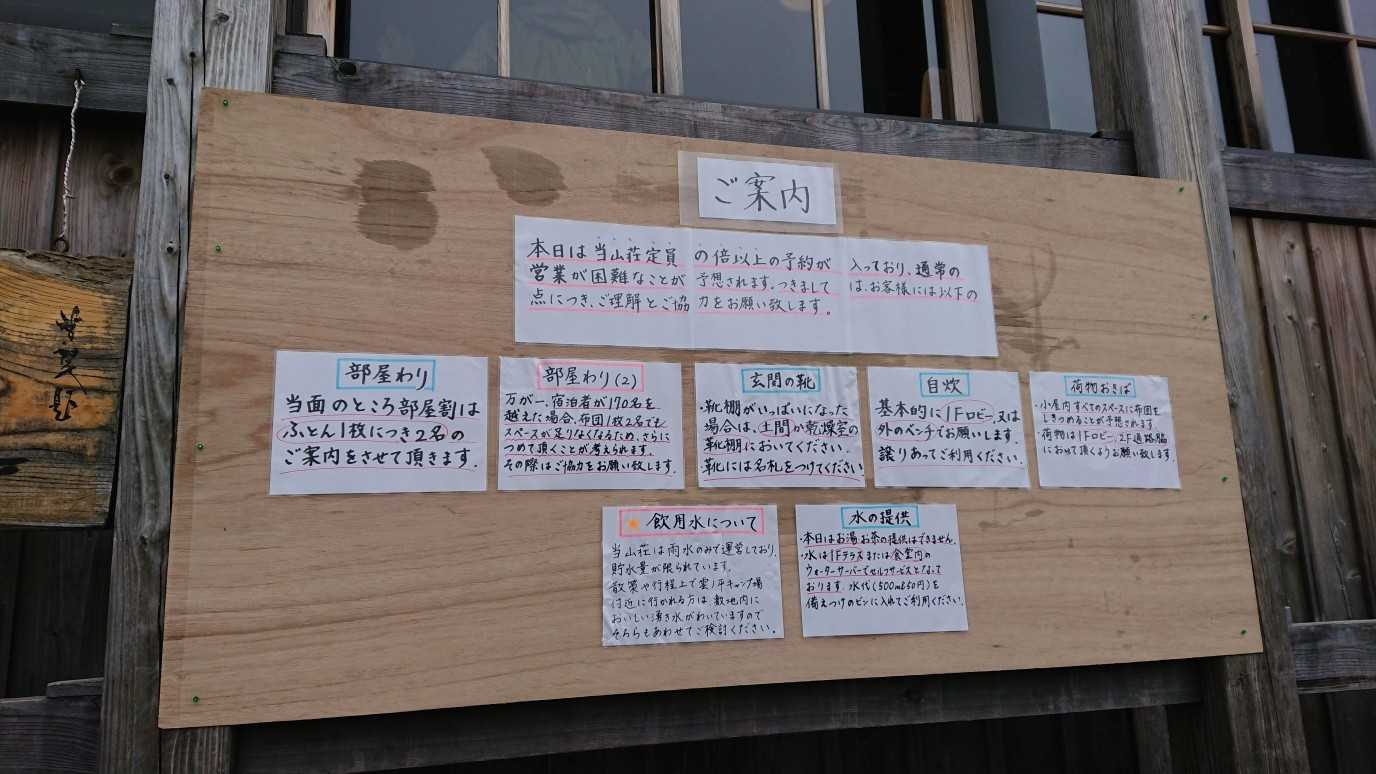 ご案内
本日は当山荘定員の倍以上の予約が入っており、通常の
営業が困難なことが予想されます。つきましては、お客様には以下の
点につき、ご理解とご協力をお願い致します。
部屋わり
当面のところ部屋割は
ふとん1枚につき2名の
ご案内をさせて頂きます。
部屋わり(2)
万が一、宿泊者が170名を
越えた場合、布団1枚2名でも
スペースが足りなくなるため、さらに
つめて頂くことが考えられます。
その際はご協力をお願い致します。
玄関の靴
・靴棚がいっぱいになった
場合は、土間か乾燥室の
靴棚においてください。
・靴には名札をつけてください
自炊
基本的に1Fロビー又は
外のベンチでお願いします。
譲りあってご利用ください。
荷物おきば
・小屋内すべてのスペースに布団を
しきつめることが予想されます。
荷物は1Fロビー、2F通路脇
において頂くようお願い致します。
★飲用水について
当山荘は雨水のみで運営しており、
貯水量が限られています。
散策や行程上で雲ノ平キャンプ場
付近に行かれる方は敷地内に
おいしい湧き水がわいていますので
そちらもあわせてご検討ください。
水の提供
・本日はお湯お茶の提供はできません。
・水は1Fテラスまたは食堂内の
ウォーターサーバーでセルフサービスとなって
おります。水代(500ml50円)を
備えつけのビンに入れてご利用ください。